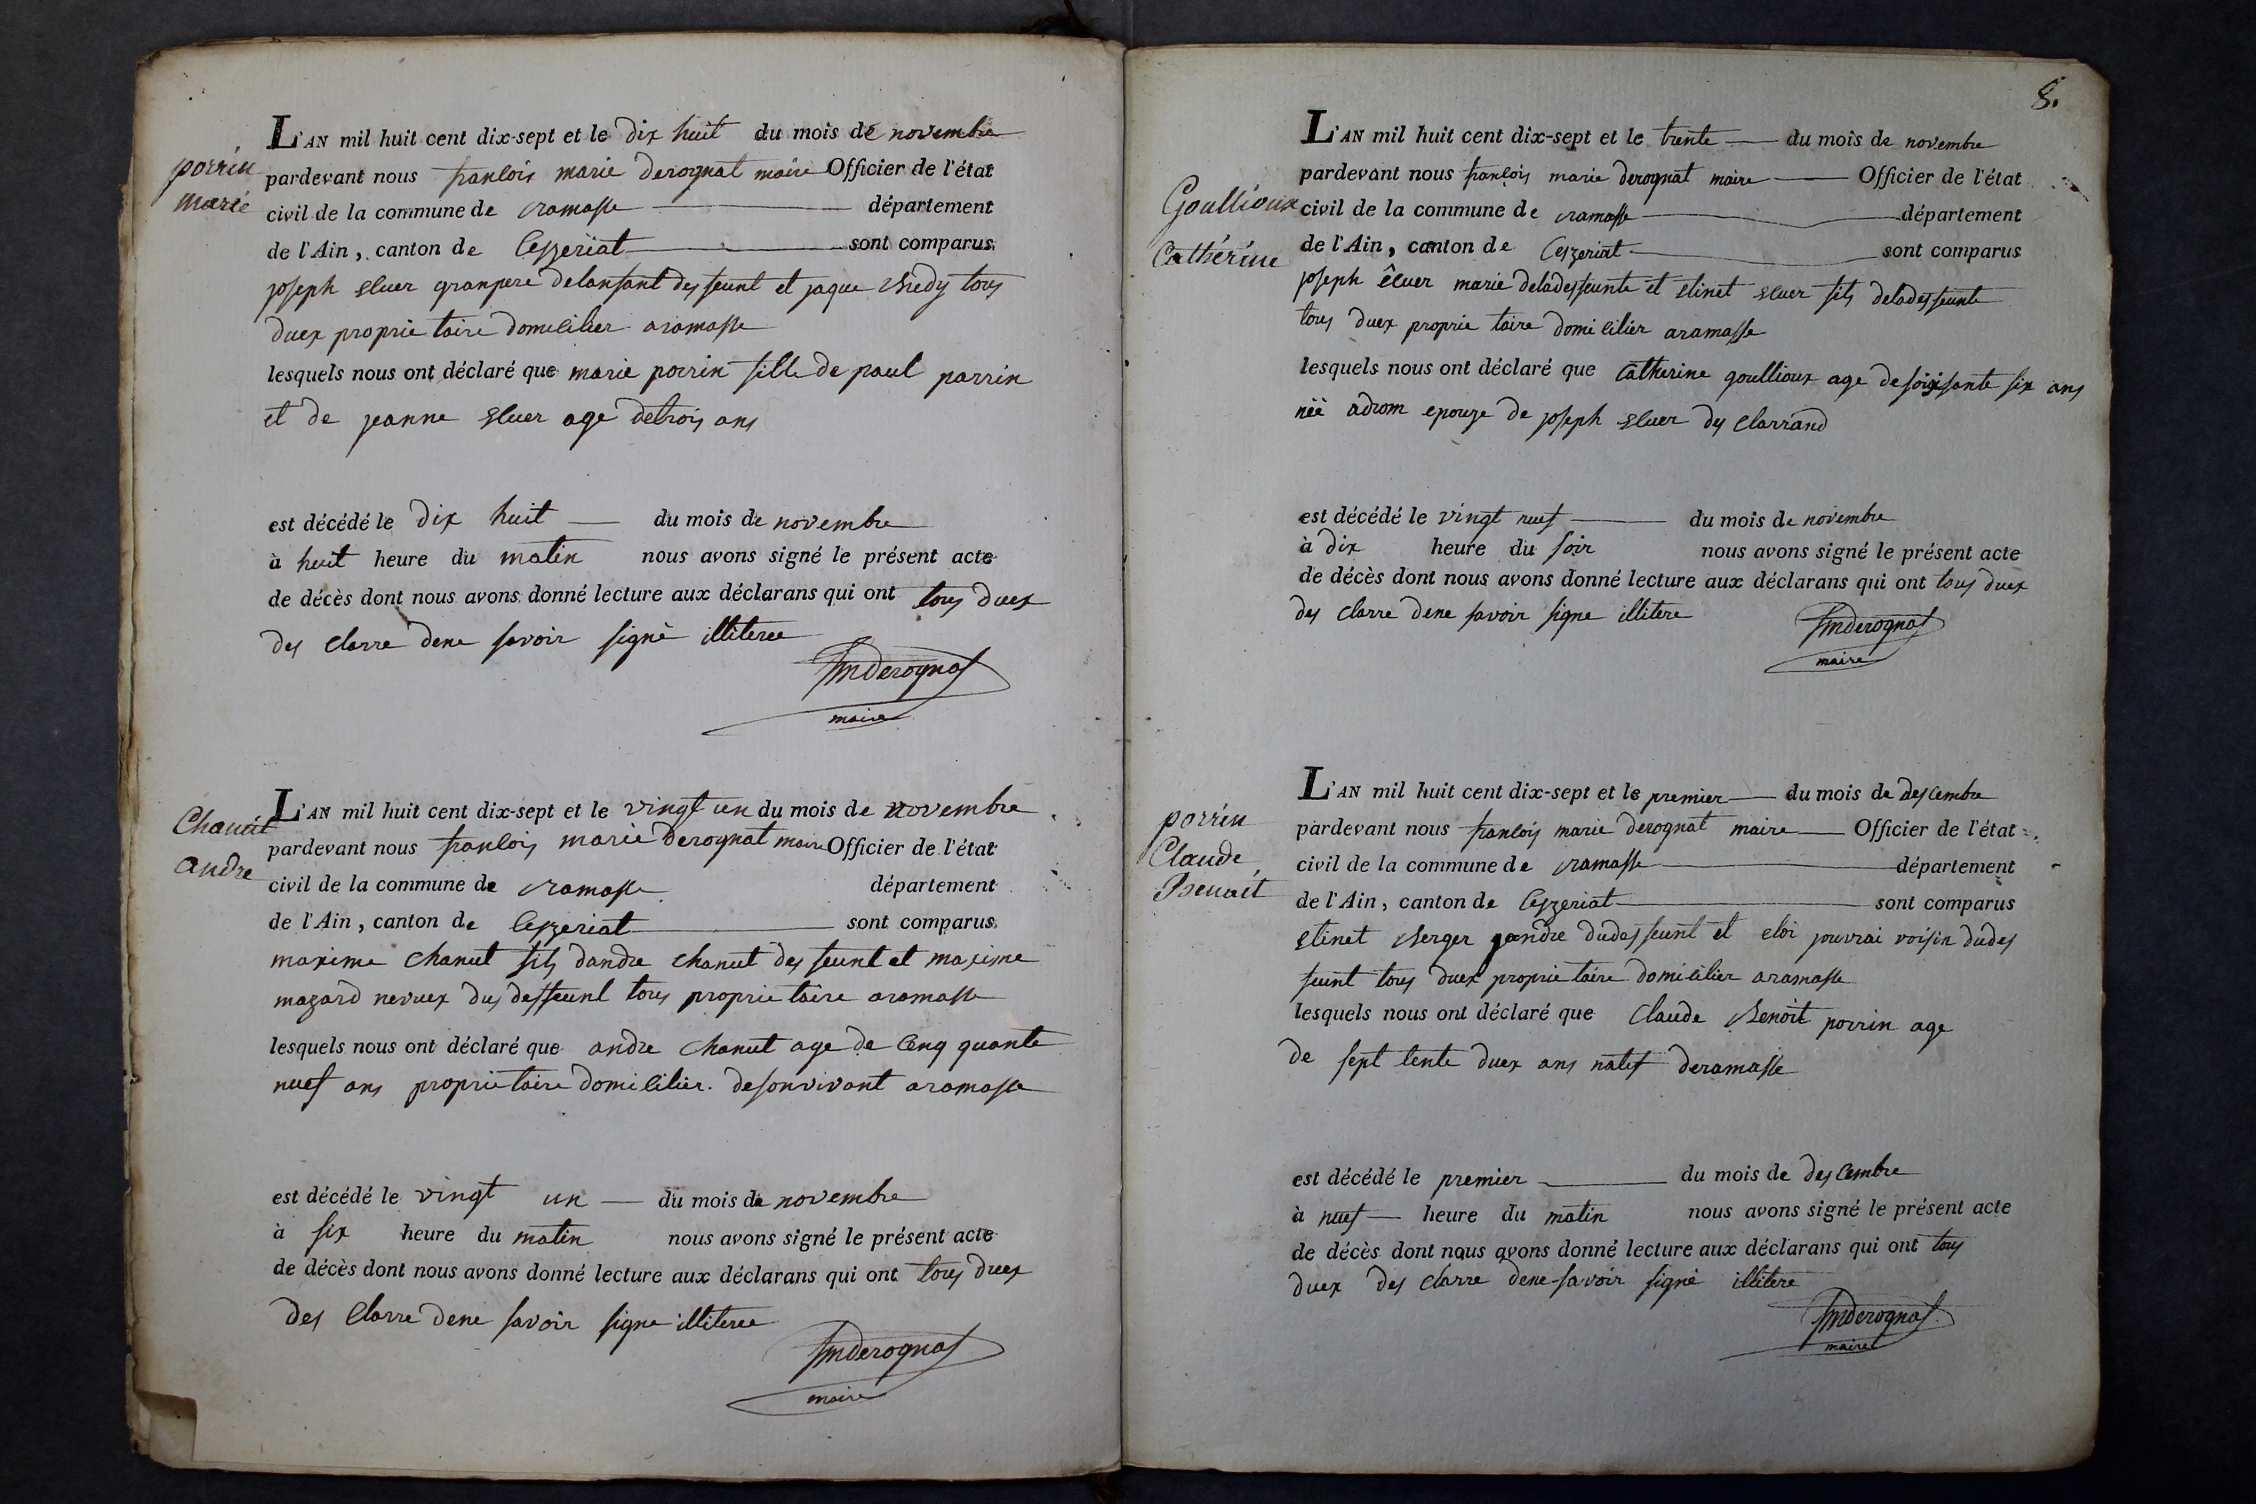 porrin
marie
L'AN mil huit cent dix-sept et le dix huit du mois de novembre
pardevant nous franlois marie derognat maire Officier de l'état
civil de la commune de ramasse département
de l'Ain, canton de Ceyzeriat sont comparus
joseph eluer granpere delanfant desfeunt et jaque Bredy tous
duex proprie taire domicilier aramasse
lesquels nous ont déclaré que marie porrin fille de paul parrin
et de jeanne eluer age detrois ans
est décédé le dix huit du mois de novembre
à huit heure du matin nous avons signé le présent acte
de décès dont nous avons donné lecture aux déclarans qui ont tous duex
des clarre dene savoir signé illiteree
fmderognat
maire
Chanut
andre
L'AN mil huit cent dix-sept et le vingt un du mois de novembre
pardevant nous franlois marie derognat maire Officier de l'état
civil de la commune de ramasse département
de l'Ain, canton de Ceyzeriat sont comparus
maxime chanut fils dandre chanut des feunt et maxime
mazard nevuex dus desfeunt tous proprie taire aramasse
lesquels nous ont déclaré que andre chanut age de Cinq quante
nuef ans proprietaire domicilier desonvivant aramasse
est décédé le vingt un du mois de novembre
à six heure du matin nous avons signé le présent acte
de décès dont nous avons donné lecture aux déclarans qui ont tous duex
des clarre dene savoir signe illiteree
fmderognat
maire
8.
Goullioux
Catherine
L'AN mil huit cent dix-sept et le trente du mois de novembre
pardevant nous françois marie derognat maire Officier de l'état
civil de la commune de ramasse département
de l'Ain, canton de Ceyzeriat sont comparus
joseph êluer marie deladesfeunte et etinet eluer fils deladesfeunte
tous duex proprie taire domicilier aramasse
lesquels nous ont déclaré que Catherine goullioux age de soixsante six ans
néé adrom epouze de joseph eluer des clarrand
est décédé le vingt nuef du mois de novembre
à dix heure du soir nous avons signé le présent acte
de décès dont nous avons donné lecture aux déclarans qui ont tous duex
des clarre dene savoir signe illitere
fmderognat
maire
porrin
Claude
Benoit
L'AN mil huit cent dix-sept et le premier du mois de descembre
pardevant nous franlois marie derognat maire Officier de l'état
civil de la commune de ramasse département
de l'Ain, canton de Ceyzeriat sont comparus
etinet Berger gendre dudesfeunt et eloi jouvrai voisin dudes
feunt tous duex proprie taire domicilier aramasse
lesquels nous ont déclaré que Claude Benoit porrin age
de sept tente duex ans natif deramasse
est décédé le premier du mois de descembre
à nuef heure du matin nous avons signé le présent acte
de décès dont nous avons donné lecture aux déclarans qui ont tous
duex des clarre dene savoir signé illitere
fmderognat
maire